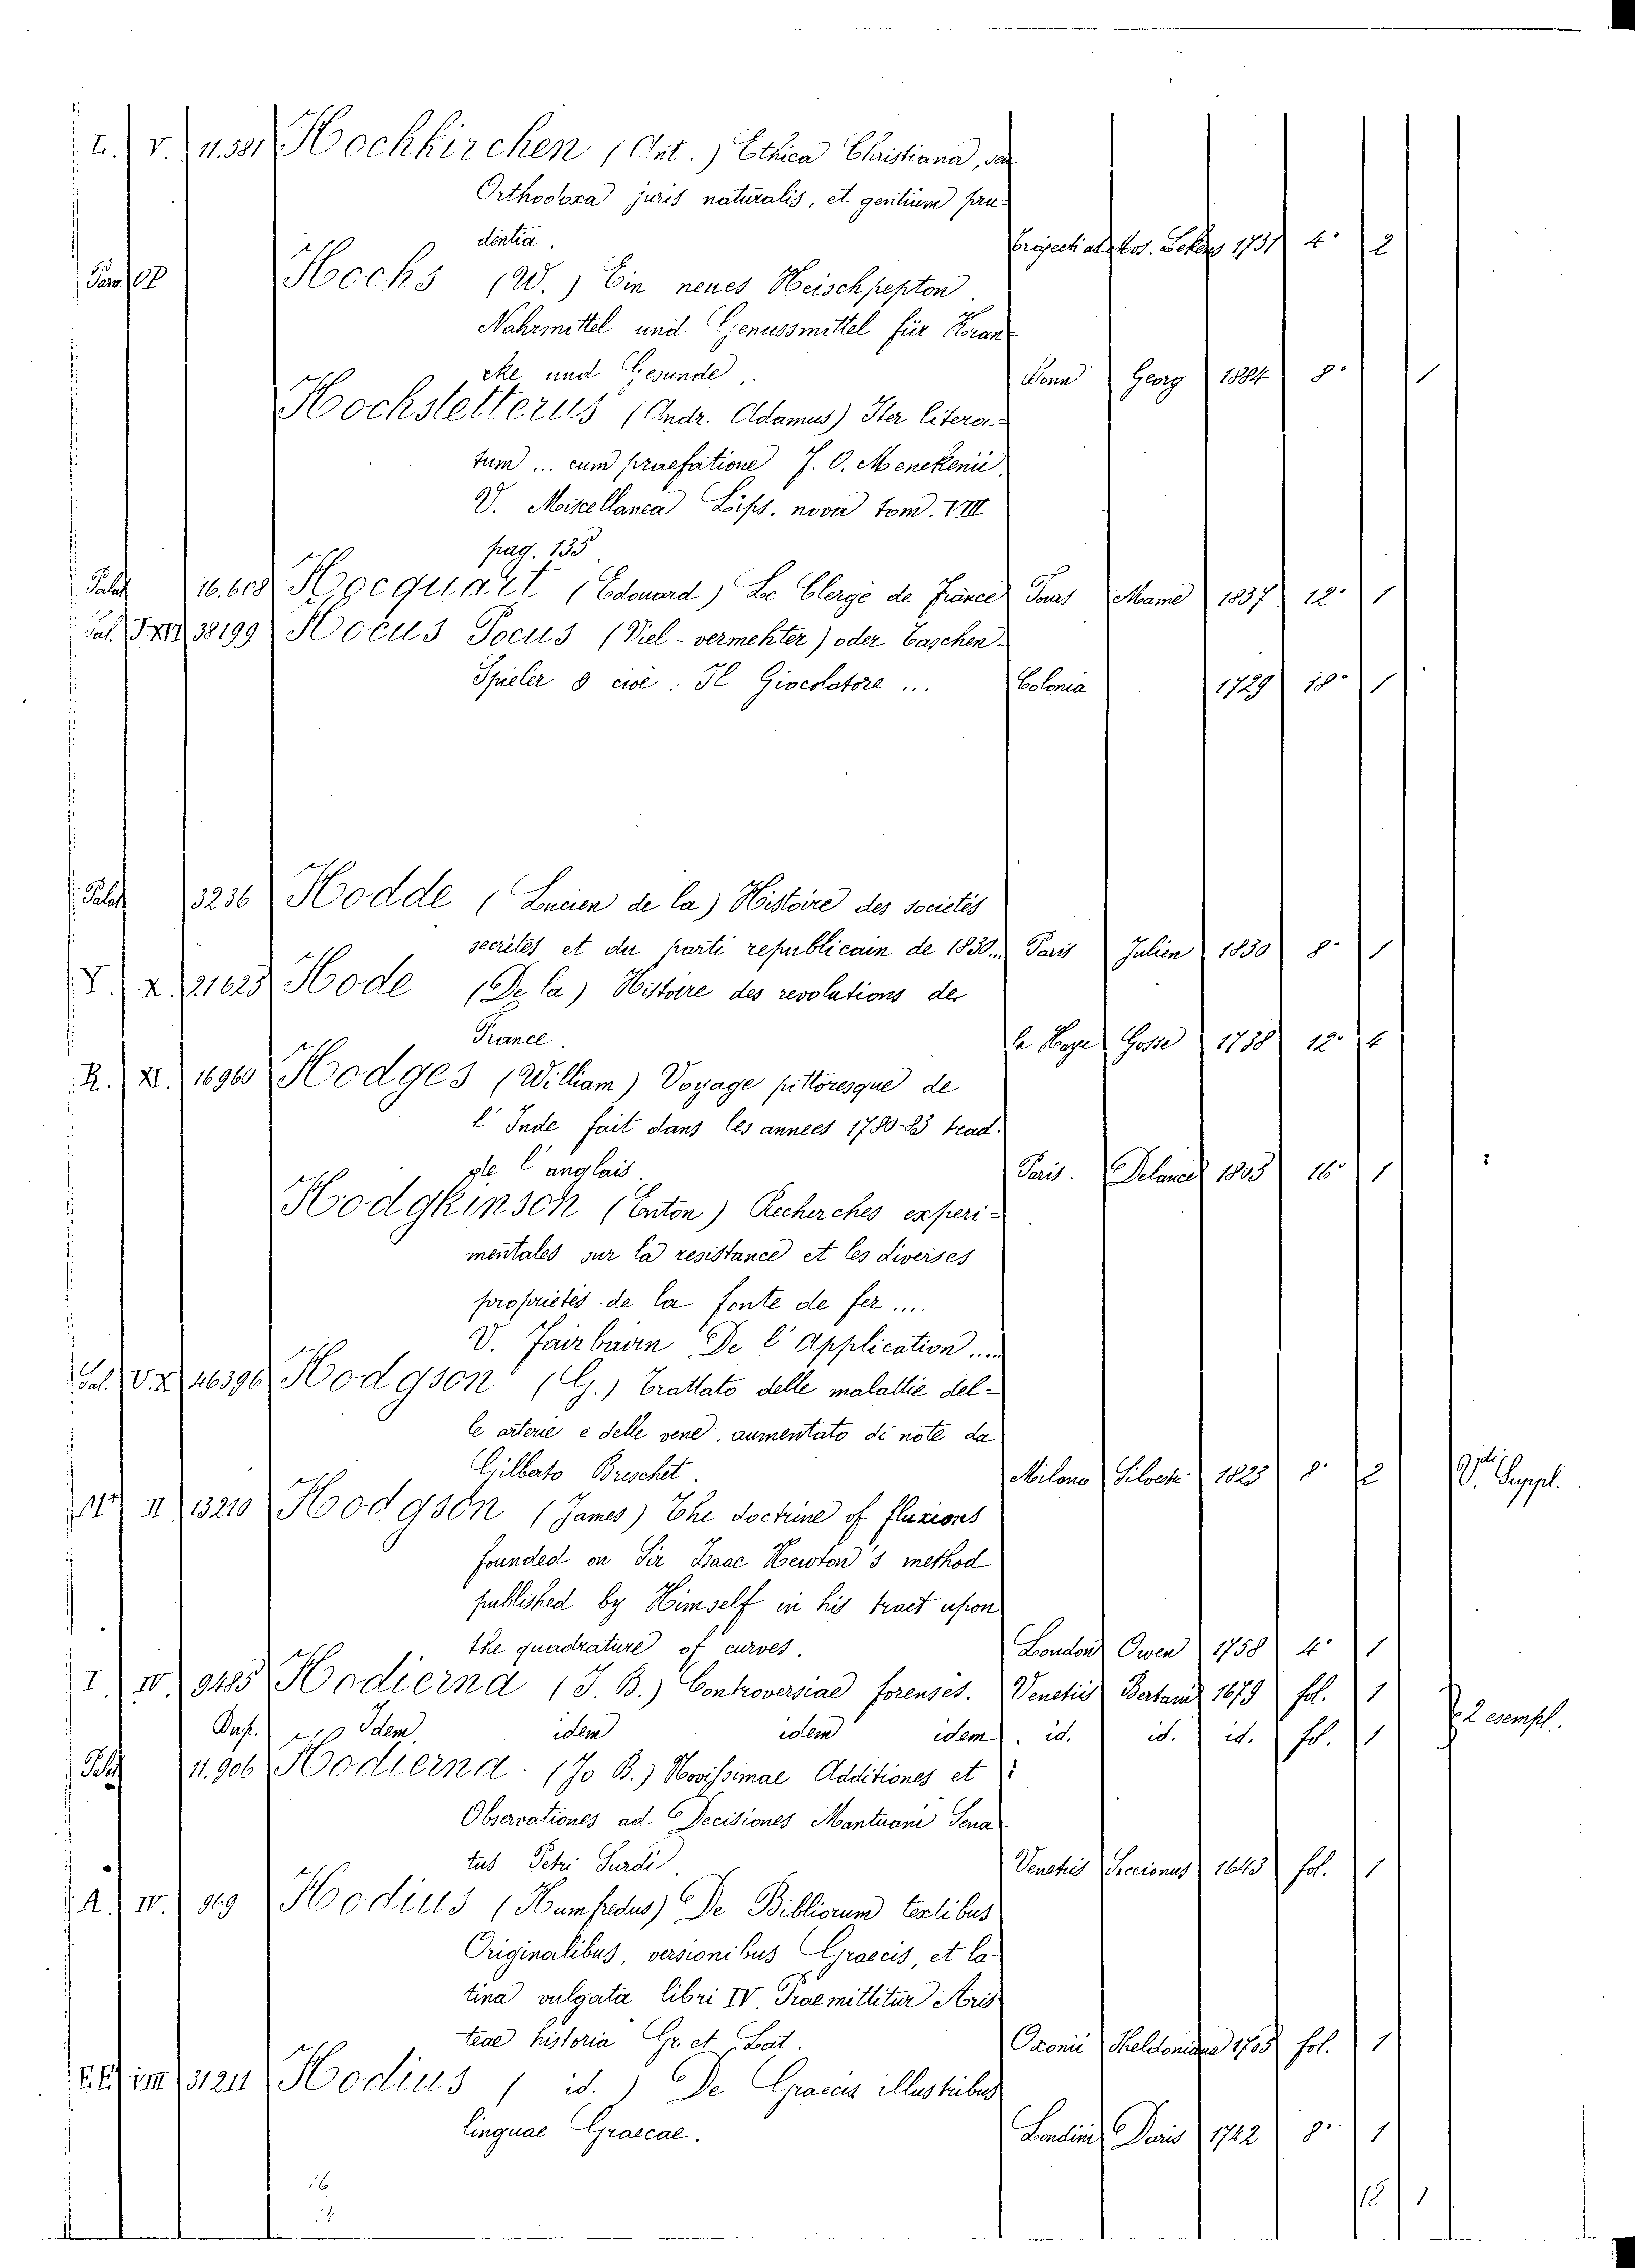 I. V. 11.381 Hochkirchen (Ant.) Ethica Christiana, seu
Orthodoxa juris naturalis, et gentium pru-
dentia. 1731 4° 2
Hocks (W.) Ein neues Heischpepton
Nahrmittel und Genussmittel für Kran-
cke und Gesunde. Bonn Georg 1884 8° 1
Hochstetterus (Andr. Adamus) Iter litera-
tum ... cum praefatione J. O. Menckenii
V. Miscellanea Lips. nova tom. VIII
pag. 135
Palat 16.608 Hocquart (Edouard) Le Clergé de France Tours Mame 1837 12° 1
38199 Hocus Pocus (Viel-vermehter) oder Taschen-
Spieler o cioè: Il Giocolatore ... Colonia 1729 18° 1
Palat 3236 Hodde (Lucien de la) Histoire des societés
secrètes et du parti republicain de 1830... Paris Julien 1830 8° 1
V. X. 21625 Hode (De la) Histoire des revolutions de
France. la Haye Gosse 1738 12° 4
R. XI. 16960 Hodges (William) Voyage pittoresque de
l'Inde fait dans les années 1780-83 trad.
de l'anglais. Paris. 1805 16° 1
Hodgkinson (Enton) Recherches experi-
mentales sur la resistance et les diverses
proprietés de la fonte de fer ....
V. Fairbairn De l'Application ....
Pal. V. X. 46396 Hodgson (G.) Trattato delle malattie del-
le arterie e delle vene, aumentato di note da
Gilberto Breschet. Milano Silvestri 1823 8° 2 V. Suppl.
II 13210 Hodgson (James) The doctrine of fluxions
founded on Sir Isaac Newton's method
published by Himself in his tract upon
the quadrature of curves. London Owen 1758 4° 1
I IV. 9485 Hodierna (J. B.) Controversiae forenses. Venetiis Bertani 1679 fol. 1
Dup. Idem idem idem idem id. id. id. fol. 1 2 esempl.
11.906 Hodierna (Jo B.) Novissimae Additiones et
Observationes ad Decisiones Mantuani Sena
tus Petri Surdi. Venetiis 1643 fol. 1
A. IV. 969 Hodius (Humfredus) De Bibliorum textibus
Originalibus, versionibus Graecis, et la-
tina vulgata libri IV. Praemittitur Aris
teae historia Gr. et Lat. Oxonii Sheldoniano 1705 fol. 1
31211 Hodius (id.) De Graecis illustribus
linguae Graecae. Londini Davis 1742 8° 1
16
18 1